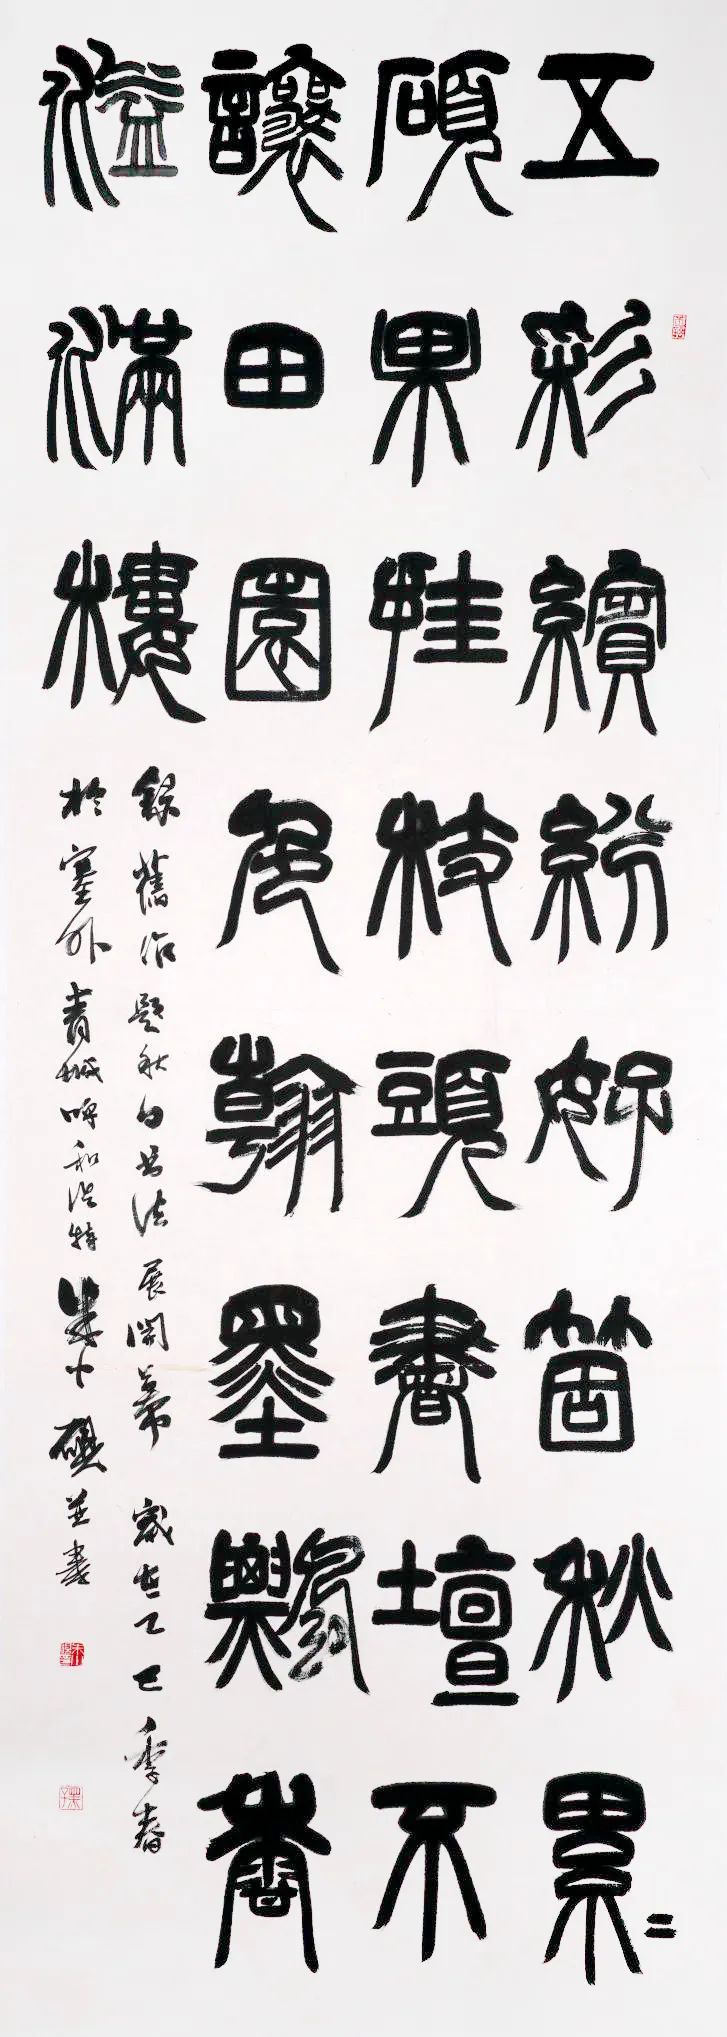 五彩繽紛好箇秋累〻
碩果挂枝頭書壇不
讓田園色翰墨飄香
溢滿樓
錄舊作題秋白书法展開幕歲在乙巳季春
於塞外青城呼和浩特朱並書